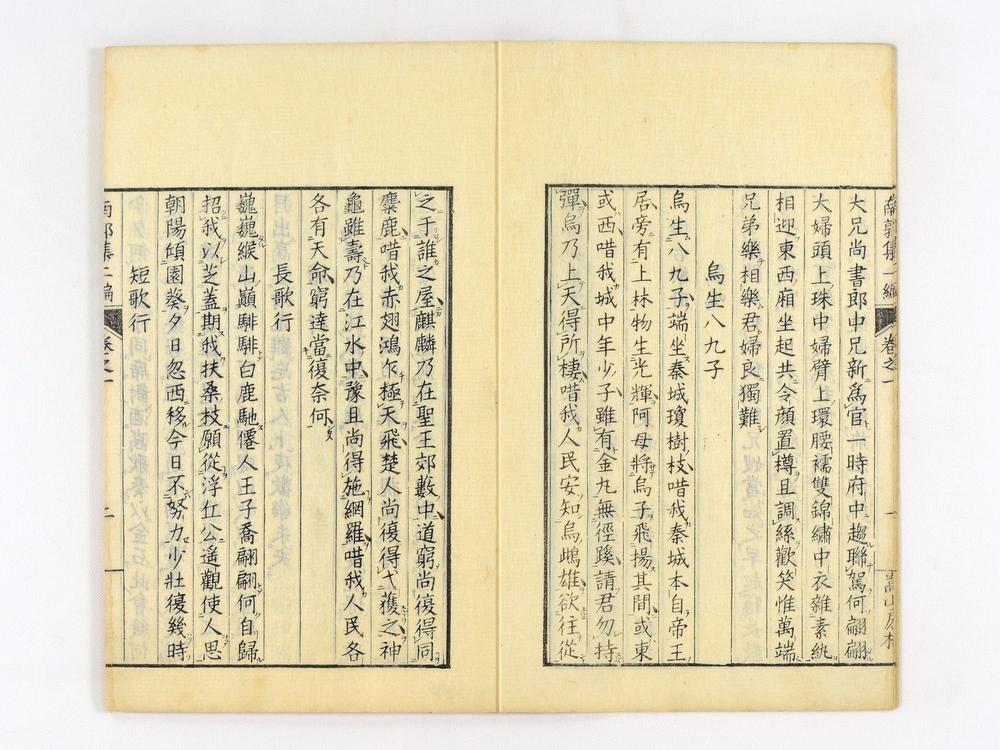 南郭集一編 卷之一 一 嵩山房梓
大兄尚書郎中兄新爲官一時府中趨聯駕何翩翩
大婦頭上珠中婦臂上環腰襦雙錦繡中衣雜素紈
相迎東西廂坐起共令顔置樽且調絲歡笑惟萬端
兄弟樂相樂君婦良獨難
烏生八九子
烏生八九子端坐秦城瓊樹枝唶我秦城本自帝王
居旁有上林物生光輝阿母將烏子飛揚其間或東
或西唶我城中年少子雖有金丸無徑蹊請君勿持
彈烏乃上天得所棲唶我人民安知烏鴟雄欲往從
之于誰之屋麒麟乃在聖王郊藪中道窮尚復得同
麋鹿唶我赤翅鴻乍極天飛楚人尚復得弋獲之神
龜雖壽乃在江水中豫且尚得施網羅唶我人民各
各有天命窮達當復奈何
長歌行
巍巍緱山巔騑騑白鹿馳僊人王子喬翩翩何自歸
招我以芝蓋期我扶桑枝願從浮丘公遥觀使人思
朝陽傾園葵夕日忽西移今日不努力少壯復幾時
短歌行
南郭集二編 卷之一 二